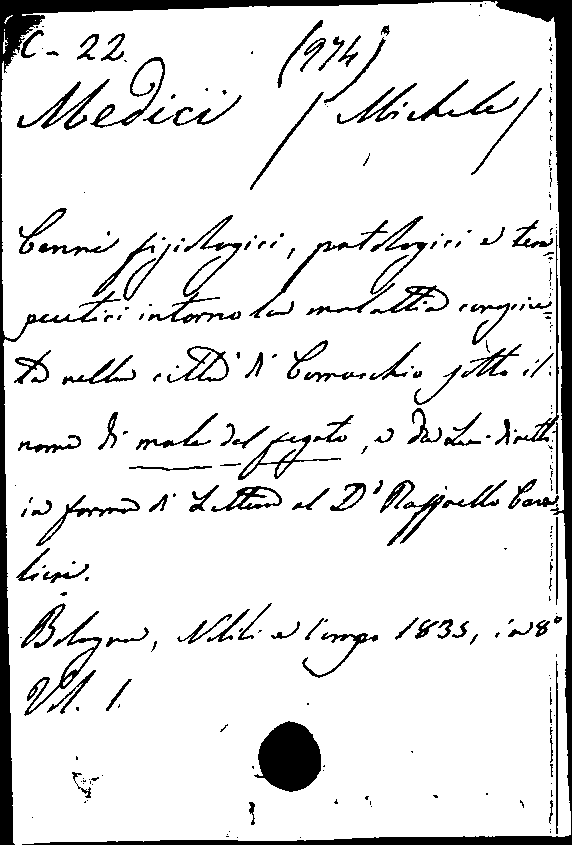 C - 22. (974)
Medici / Michele /
Cenni fisiologici, patologici e tera-
peutici intorno la malattia conosciu-
ta nella città di Comacchio sotto il
nome di male del fegato, e da Lui diretti
in forma di Lettera al Dr Raffaello Cava-
lieri.
Bologna, Nobili e Comp. 1835, in 8°
Vol. 1.